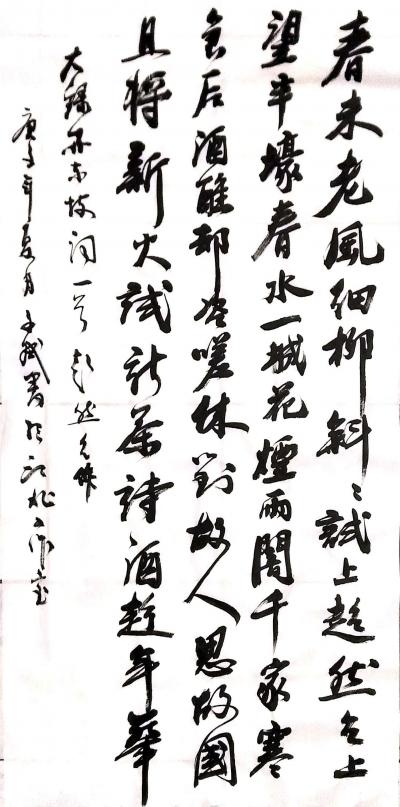 春未老風細柳斜〻試上超然台上
望半壕春水一城花煙雨闇千家寒
食后酒醒却咨嗟休對故人思故國
且將新火試新茶詩酒趁年華
錄东坡词一首超然台作
庚子年夏月書於江北工作室